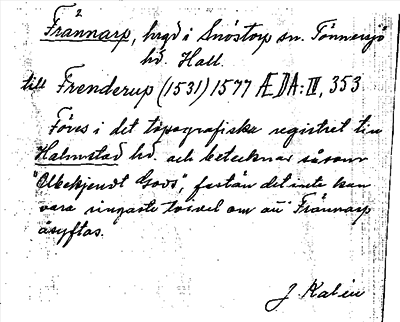 Frånnarp, hrgd i Snöstorp sn. Tönnersjö
hd. Hall.
till Frenderup (1531) 1577 ÆDA: IV, 353
Föres i det topografiska registret till
Halmstad hd. och betecknas såsom
"Ubekjendt Gods", fastän det inte kan
vara ringaste tvivel om att Frånnarp
åsyftas.
J. Kalén